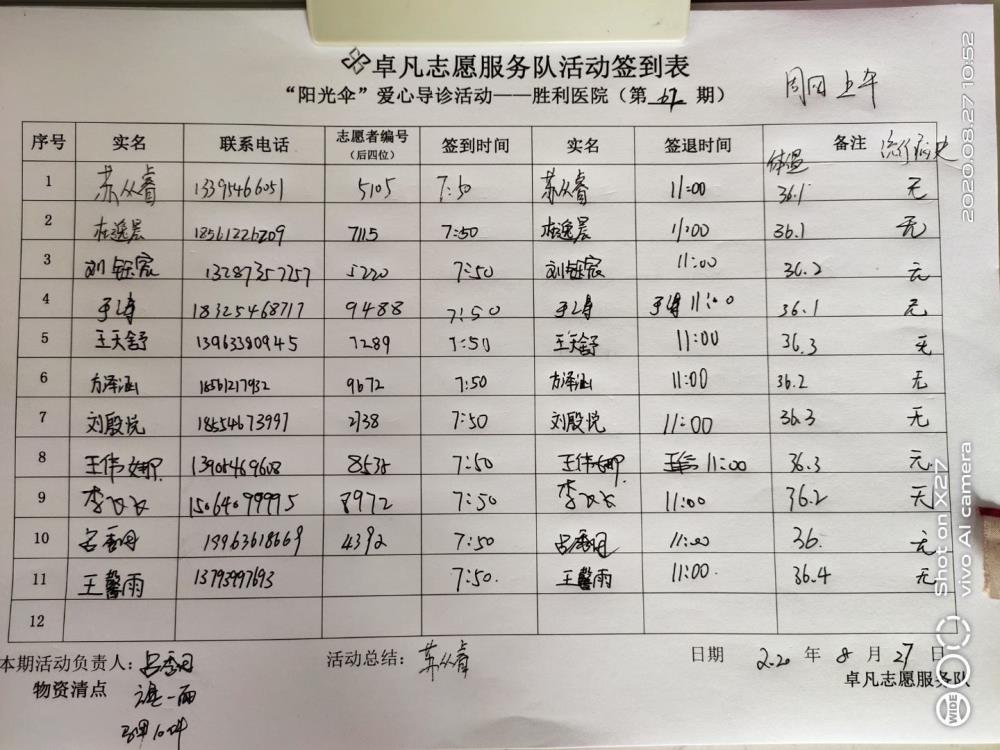 卓凡志愿服务队活动签到表
“阳光伞”爱心导诊活动——胜利医院（第 67 期） 周四 上午
序号 实名 联系电话 志愿者编号（后四位） 签到时间 实名 签退时间 备注 体温 流行病史
1 苏从睿 13395466051 5105 7:50 苏从睿 11:00 36.1 无
2 杜逸晨 18561226209 7115 7:50 杜逸晨 11:00 36.1 无
3 刘钰宸 13287357257 5220 7:50 刘钰宸 11:00 36.2 无
4 18325468717 9488 7:50 11:00 36.1 无
5 王天舒 13963380945 7289 7:50 王天舒 11:00 36.3 无
6 方泽涵 18561217932 9672 7:50 方泽涵 11:00 36.2 无
7 刘殿悦 18554673997 2738 7:50 刘殿悦 11:00 36.3 无
8 王伟娜 13905469608 8535 7:50 王伟娜 11:00 36.3 无
9 李 15064099995 8972 7:50 李 11:00 36.2 无
10 吕秀丹 18963618669 4392 7:50 吕秀丹 11:00 36. 无
11 王馨雨 13793997693 7:50. 王馨雨 11:00. 36.4 无
12
本期活动负责人：吕秀丹 活动总结：苏从睿 日期 2020 年 8 月 27 日
物资清点 卓凡志愿服务队
2020.08.27 10:52
Shot on X27
vivo AI camera
WIDE